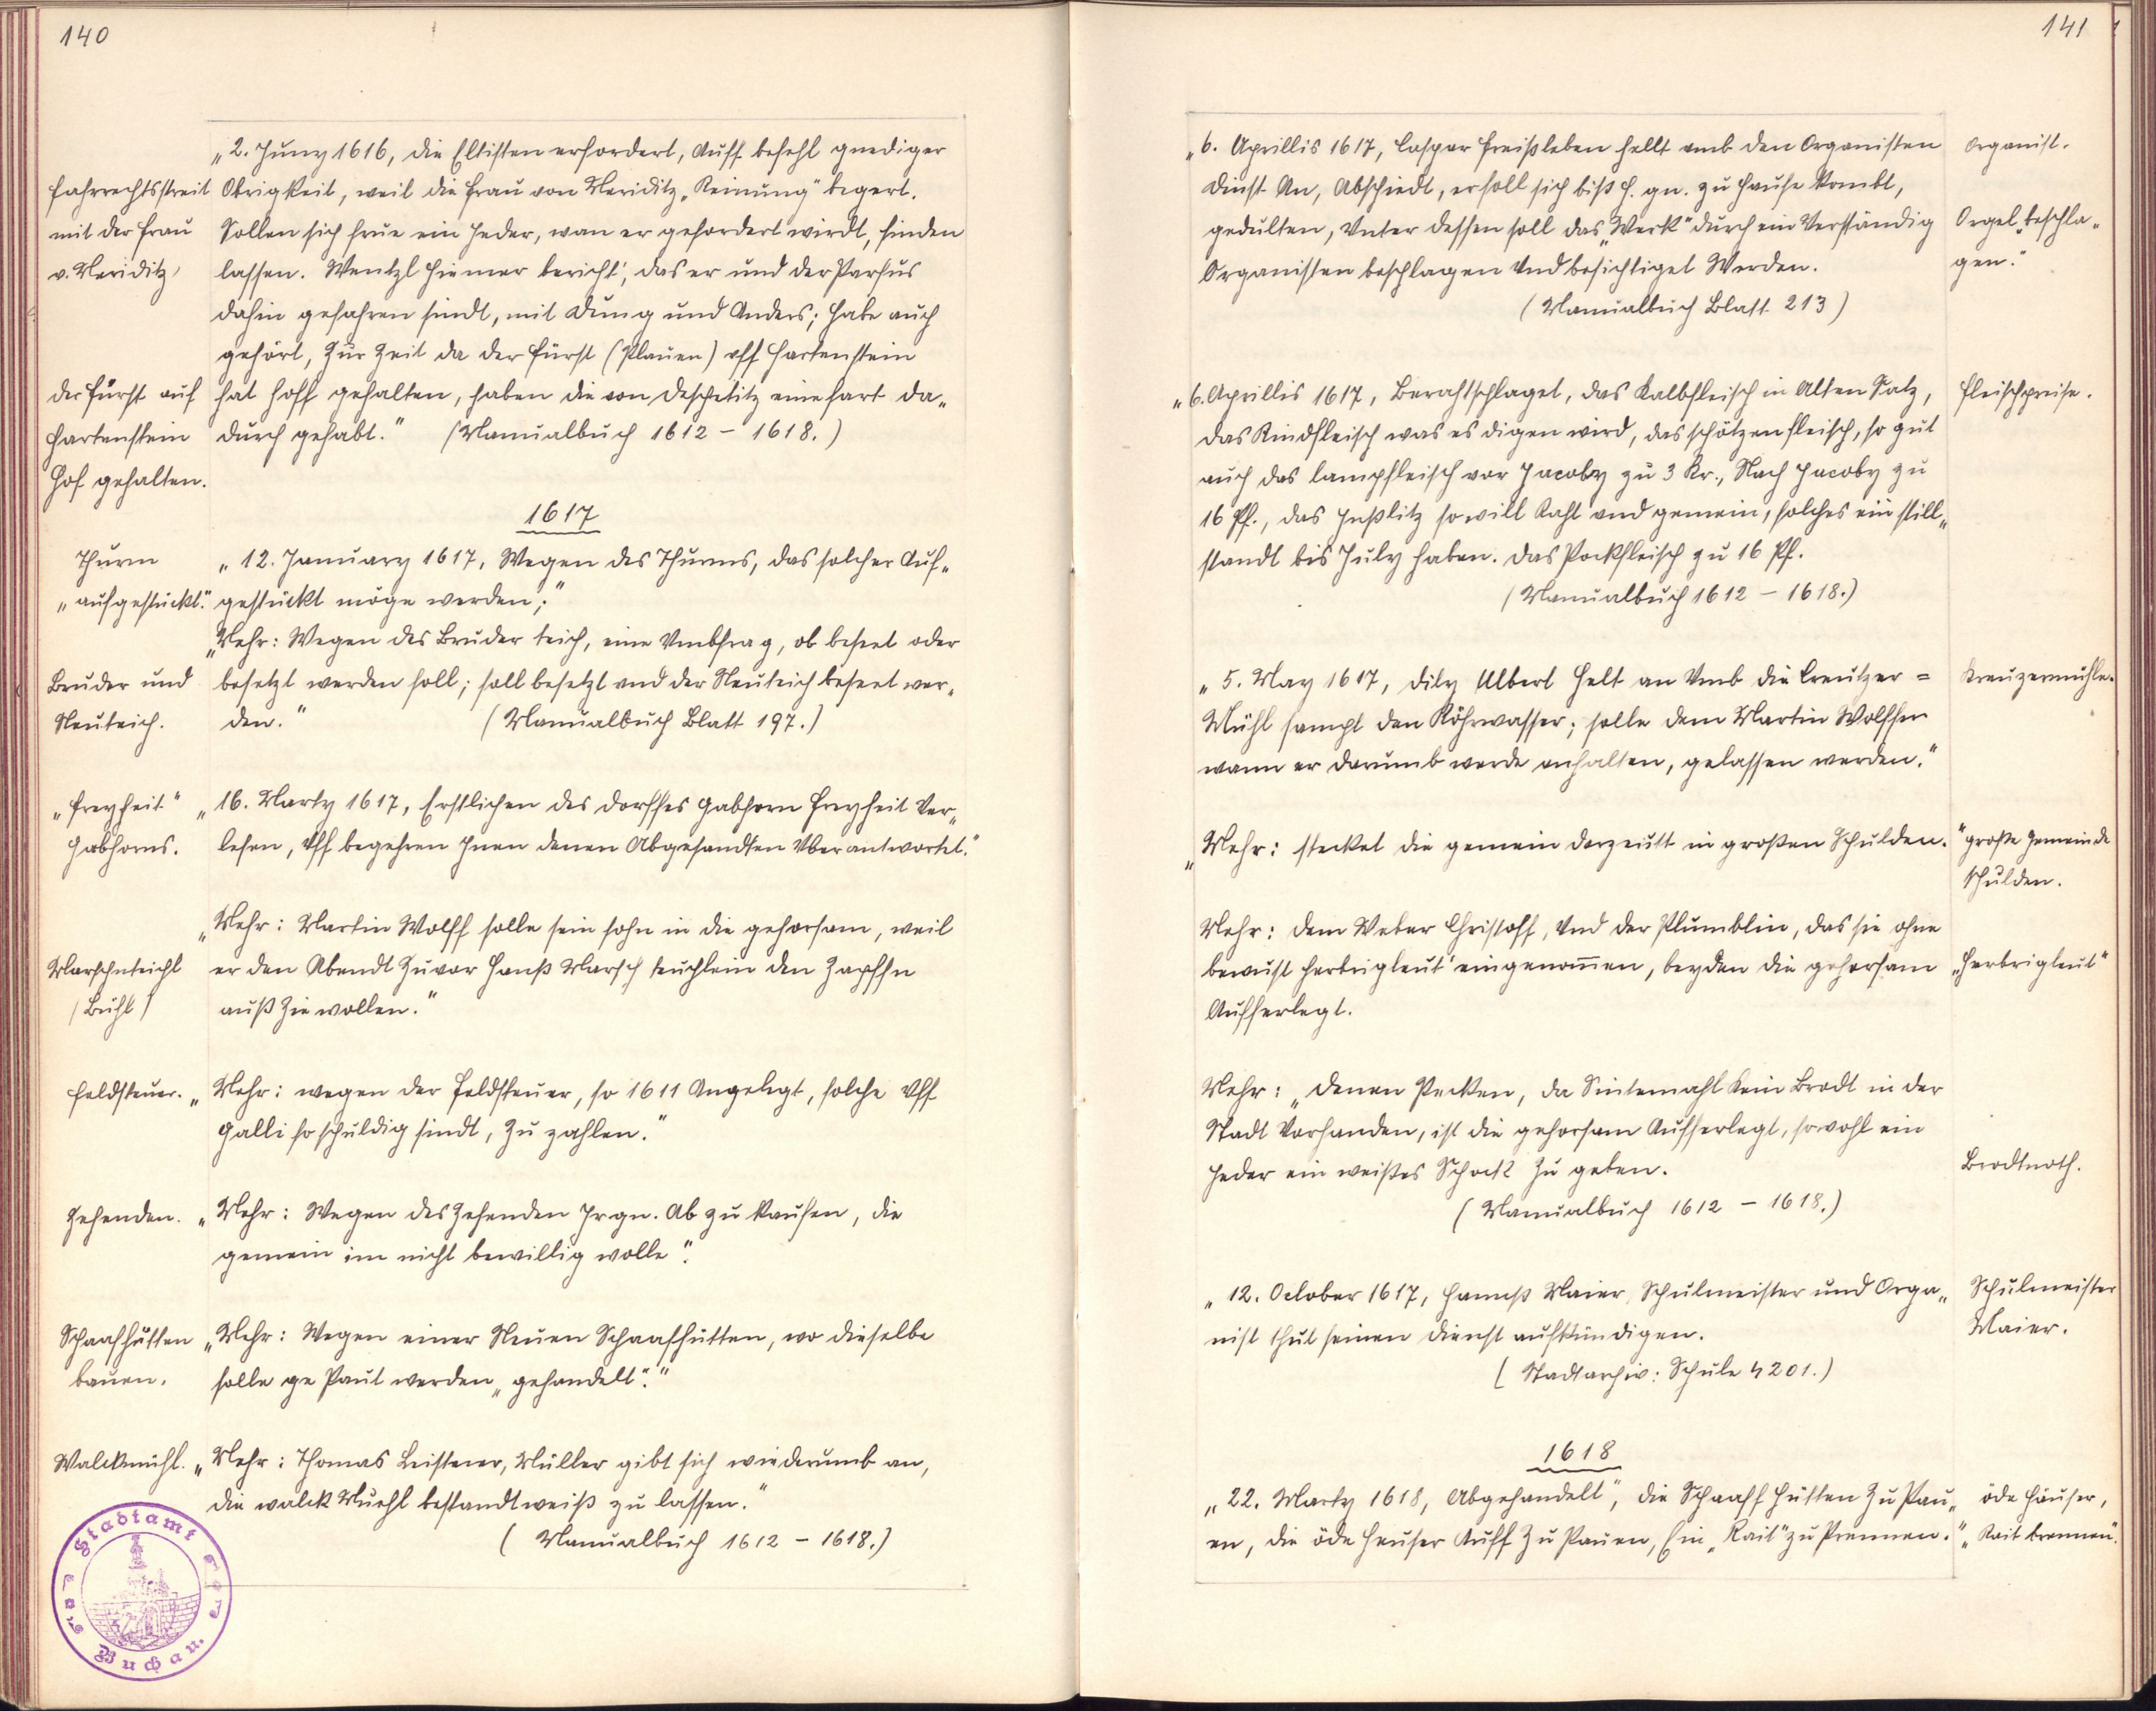 140
„2. Juny 1616, die Eltisten erfordert, Auff befehl gnediger
Fahrrechtsstreit
mit der Frau
v. Meriditz,
Obrigkeit, weil die Frau von Meriditz „Reinung" begert.
Sollen sich frue ein Jeder, wan er gefordert wirdt, finden
lassen. Wentzl Hiemer bericht', das er und der
dahin gefahren sindt, mit Dung und Anders; habe auch
gehört, Zur Zeit da der Fürst (Plauen) uff Hartenstein
hat Hoff gehalten, haben die von Deschetitz eine fart da„
durch gehabt." (Manualbuch 1612 – 1618.)
der Fürst auf
Hartenstein
Hof gehalten.
1617
Thurm
„aufgestückt."
„12. January 1617, Wegen des Thurms, das solcher Auf„
gestückt möge werden;"
„Mehr: Wegen des Bruder teich, eine Vmbfrag, ob beseet oder
besetzt werden soll; soll besetzt und der Neuteich beseet wer„
den." (Manualbuch Blatt 197.)
Bruder und
Neuteich.
„Freyheit"
Gabhorns.
„16. Marty 1617, Erstlichen des Dorffes Gabhorn Freyheit Ver„
lesen, Vff begehren Jnen denen Abgesandten Vberantwortet."
„Mehr: Martin Wolff solle sein sohn in die gehorsam, weil
er den Abendt Zuvor Hanß Marsch teuchlein den Zapffen
auß Zie wollen."
Marschnteichl
(Bühl)
Feldsteuer.
„Mehr: wegen der Feldsteuer, so 1611 Angelegt, solche Vff
Galli so schuldig sindt, Zu zahlen."
Zehenden.
„Mehr: Wegen des Zehenden Jr gn. Ab zu kaufen, die
gemein im nicht bewillig wolle".
Schaafhütten
bauen.
„Mehr: Wegen einer Neuen Schaafhütten, wo dieselbe
solle ge Paut werden „gehandelt"."
Walckmühl.
„Mehr: Thomas Leistner, Müller gibt sich wiederumb an,
die walck Muehl bestandtweiß zu lassen."
(Manualbuch 1612 – 1618.)
Stadtamt der
Buchau.
141
„6. Aprillis 1617, Caspar Freißleben hellt umb den Organisten
Dinst An, Abschiedt, er soll sich biß H. gn. zu Hause kombt,
gedulten, Vnter dessen soll das „Werk" durch ein Verständig
Organisten beschlagen Vnd besichtiget Werden.
(Manualbuch Blatt 213)
Organist.
Orgel „beschla„
gen."
„6. Aprillis 1617, Berahtschlaget, das Kalbfleisch in Alten Satz,
das Rindfleisch was es digen wird, das schötzenfleisch, so gut
auch das lampfleisch vor Jacoby zu 3 Kr., Nach Jacoby zu
16 Pf., das Jnßlitz so will Raht und gemein, solches ein still„
standt bis July haben. Das Pockfleisch zu 16 Pf.
(Manualbuch 1612 – 1618.)
Fleischpreise.
„5. May 1617, Albert Helt an Vmb die Creutzer =
Mühl sampt den Röhrwasser; solle dem Martin Wolffen
wann er darumb werde anhalten, gelassen werden."
Kreuzermühle.
„Mehr: stecket die gemein derzeutt in großen Schulden."
große Gemeinde
schulden.
Mehr: dem Weber Christoff, Vnd der Plumblin, das sie ohne
bewust herbrigleut' eingenom̄en, beyden die gehorsam
Aufferlegt.
„Herbrigleut"
Mehr: „Denen Pecken, da Sintemahl kein Brodt in der
Stadt Vorhanden, ist die gehorsam Aufferlegt, sowohl ein
Jeder ein weißes Schock Zu geben.
(Manualbuch 1612 – 1618.)
Brodtnoth.
„12. October 1617, Hannß Maier, Schulmeister und Orga„
nist thut seinen Dienst aufkündigen.
(Stadtarchiv: Schule 4201.)
Schulmeister
Maier.
1618
„22. Marty 1618, Abgehandelt", die Schaaff Hütten Zu Pau„
en, die öde Heuser Auff Zu Pauen, Ein „Kait" zu Prennen."
öde Häuser,
„Kait brennen".